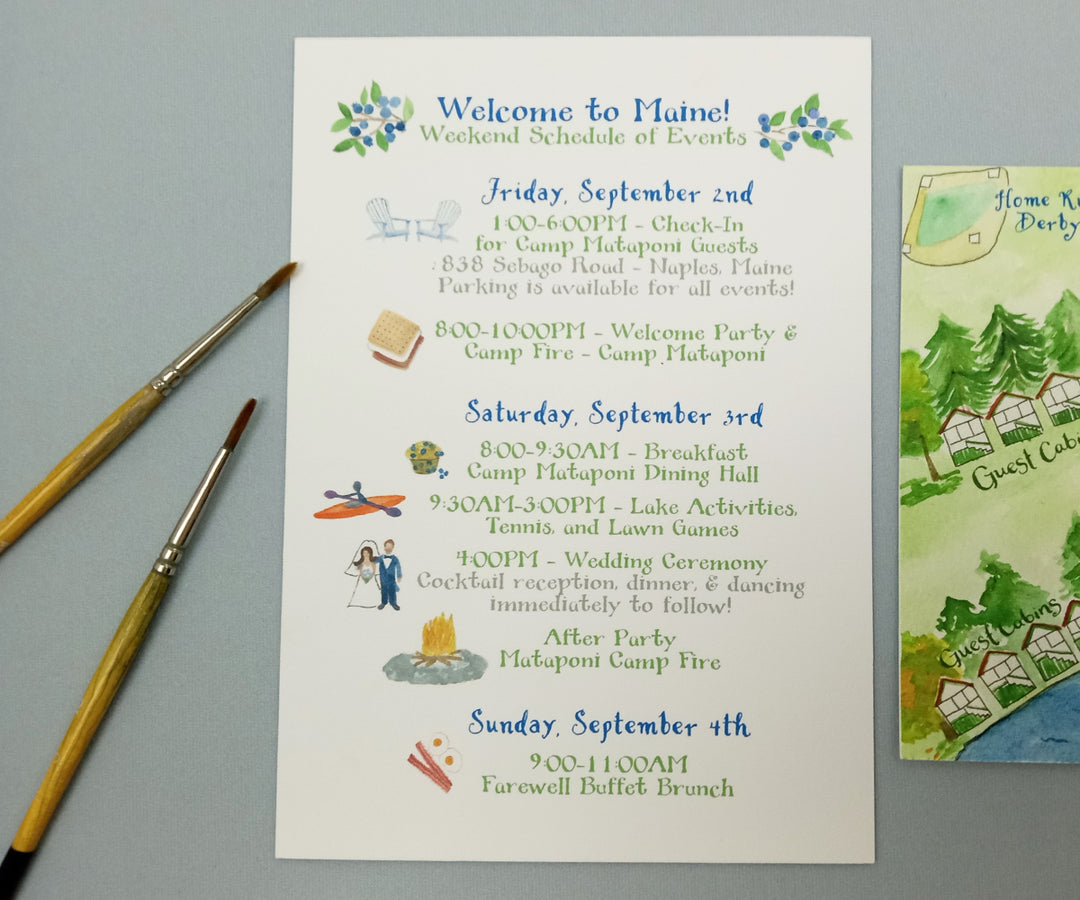 Welcome to Maine!
Weekend Schedule of Events
Friday, September 2nd
1:00-6:00PM - Check-In
for Camp Mataponi Guests
838 Sebago Road - Naples, Maine
Parking is available for all events!
8:00-10:00PM - Welcome Party &
Camp Fire - Camp Mataponi
Saturday, September 3rd
8:00-9:30AM - Breakfast
Camp Mataponi Dining Hall
9:30AM-3:00PM - Lake Activities,
Tennis, and Lawn Games
4:00PM - Wedding Ceremony
Cocktail reception, dinner, & dancing
immediately to follow!
After Party
Mataponi Camp Fire
Sunday, September 4th
9:00-11:00AM
Farewell Buffet Brunch
Home
Derby
Guest
Guest Cabins